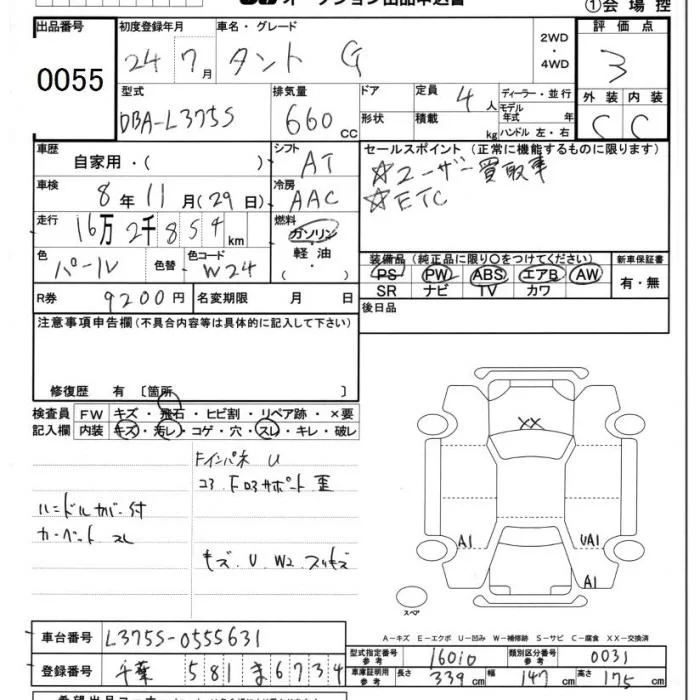 オークション出品申込書
①会場控
出品番号 初度登録年月 車名・グレード 2WD・4WD 評価点
0055 24 7月 タント G 3
型式 排気量 ドア 定員 4人 ディーラー・並行 外装 内装
DBA-L375S 660cc 形状 積載 kg モデル年式 年 ハンドル 左・右 C C
車歴 自家用・( ) シフト AT セールスポイント (正常に機能するものに限ります)
☆ユーザー買取車
☆ETC
車検 8年11月(29日) 冷房 AAC
走行 16万2千854km 燃料 ガソリン・軽油・( )
色 パール 色替 色コード W24
装備品 (純正品に限り○をつけてください) 新車保証書
PS PW ABS エアB AW 有・無
SR ナビ TV カワ
R券 9200円 名変期限 月 日 後日品
注意事項申告欄 (不具合内容等は具体的に記入して下さい)
修復歴 有 〔箇所 〕
検査員 FW キズ・飛石・ヒビ割・リペア跡・×要
記入欄 内装 キズ・汚レ・コゲ・穴・スレ・キレ・破レ
Fインパネ U
コア F ロアサポート 歪
ハンドルカバー付
カーペット スレ
キズ U W2 スリキズ
XX
A1 UA1
A1
スペア
A-キズ E-エクボ U-凹み W-補修跡 S-サビ C-腐食 XX-交換済
車台番号 L375S-0555631
型式指定番号 参考 16010 類別区分番号 参考 0031
登録番号 千葉 581 ま 6734
車庫証明用 参考 長さ 339cm 幅 147cm 高さ 175cm